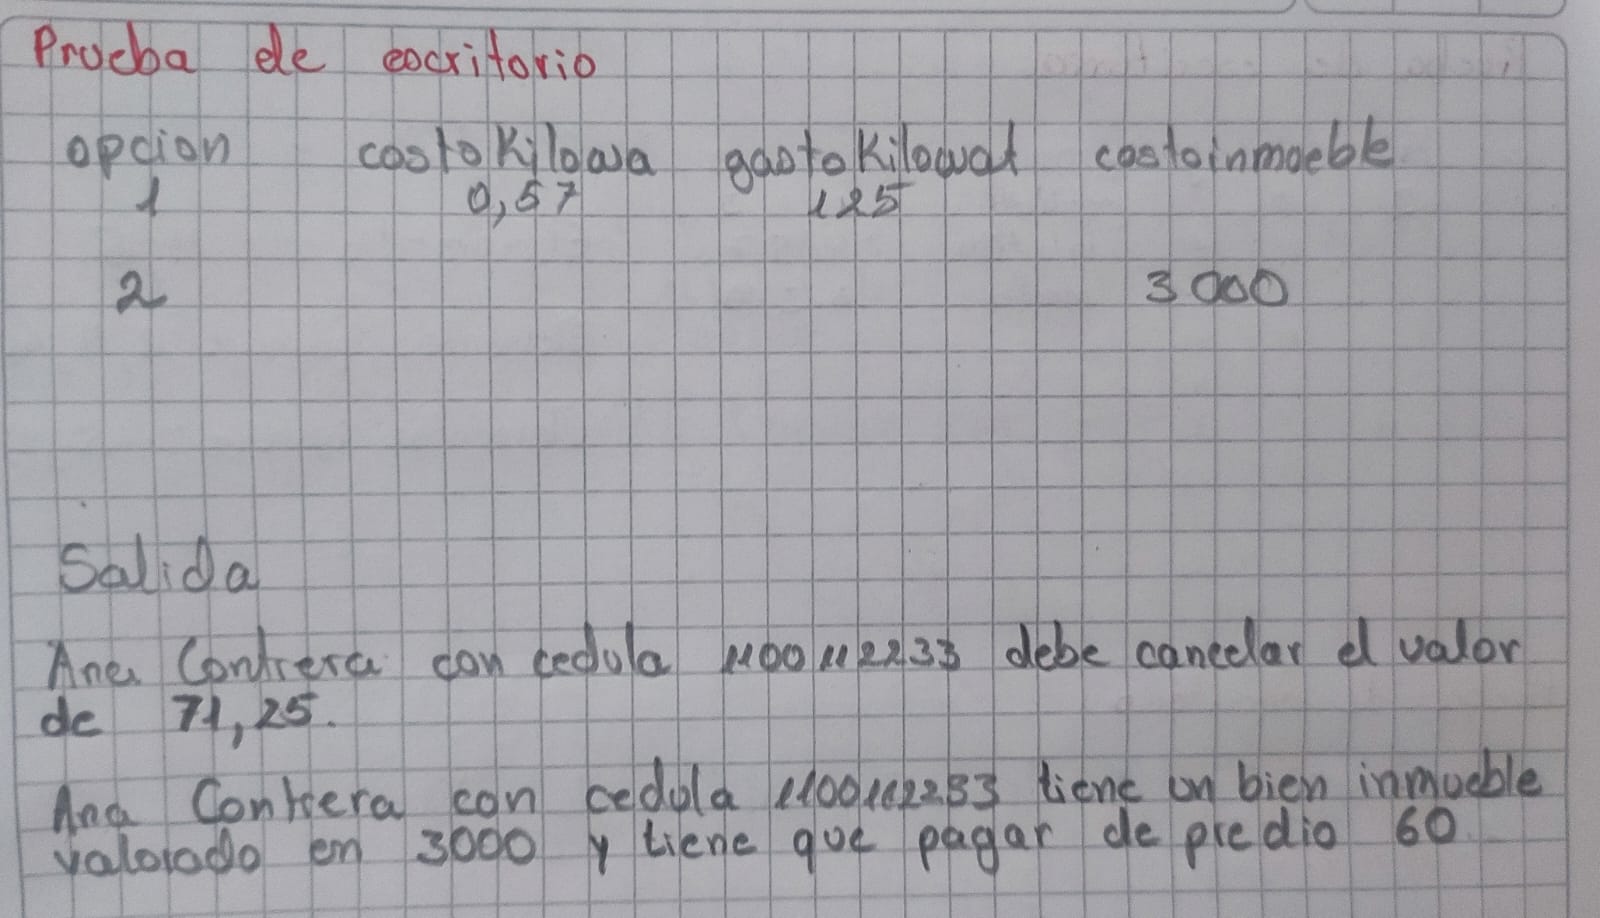 Prueba de escritorio
opcion costokilowa gastokilowat costoinmueble
1 0,57 125
2 3000
Salida
Ana Contrera con cedula 1100112233 debe cancelar el valor
de 71,25.
Ana Contrera con cedula 1100112233 tiene un bien inmueble
valorado en 3000 y tiene que pagar de predio 60